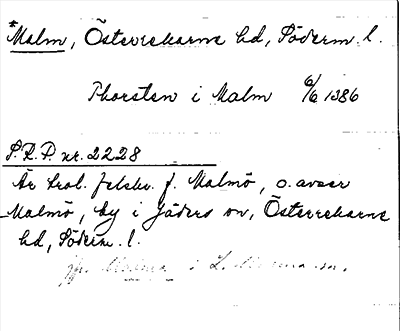 *Malm, Österrekarne hd, Söderm. l.
Thorsten i Malm 6/6 1386
S.R.P. nr. 2228
Är trol. felskr. f. Malmö, o. avser
Malmö, by i Jäders sn, Österrekarne
hd, Söderm. l.
jfr i L.